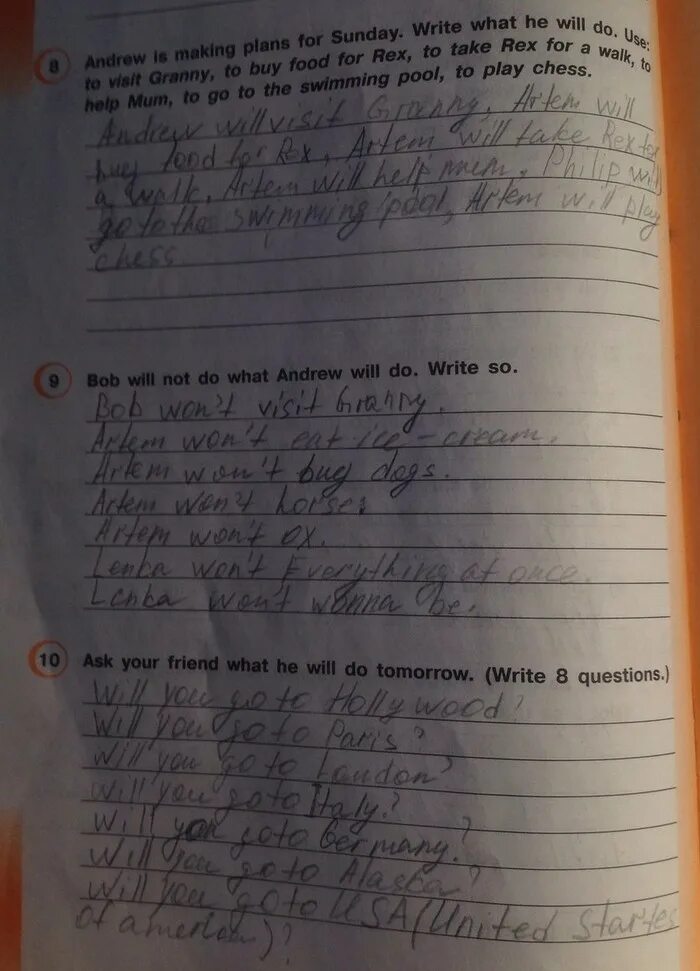 8 Andrew is making plans for Sunday. Write what he will do. Use:
to visit Granny, to buy food for Rex, to take Rex for a walk, to
help Mum, to go to the swimming pool, to play chess.
Andrew will visit Granny, Artem will
buy food for Rex, Artem will take Rex for
a walk, Artem will help mem, Philip will
go to the swimming pool, Artem will play
chess
9 Bob will not do what Andrew will do. Write so.
Bob won't visit Granny.
Artem won't eat ice-cream.
Artem won't bug dogs.
Artem won't horses
Artem won't ox.
Lenka won't Everything at once.
Lenka won't wonna be.
10 Ask your friend what he will do tomorrow. (Write 8 questions.)
Will you go to Hollywood?
Will you go to Paris?
Will you go to Loudon?
Will you go to Italy?
Will you go to Germany?
Will you go to Alaska?
Will you go to USA (United Startes
of america)?